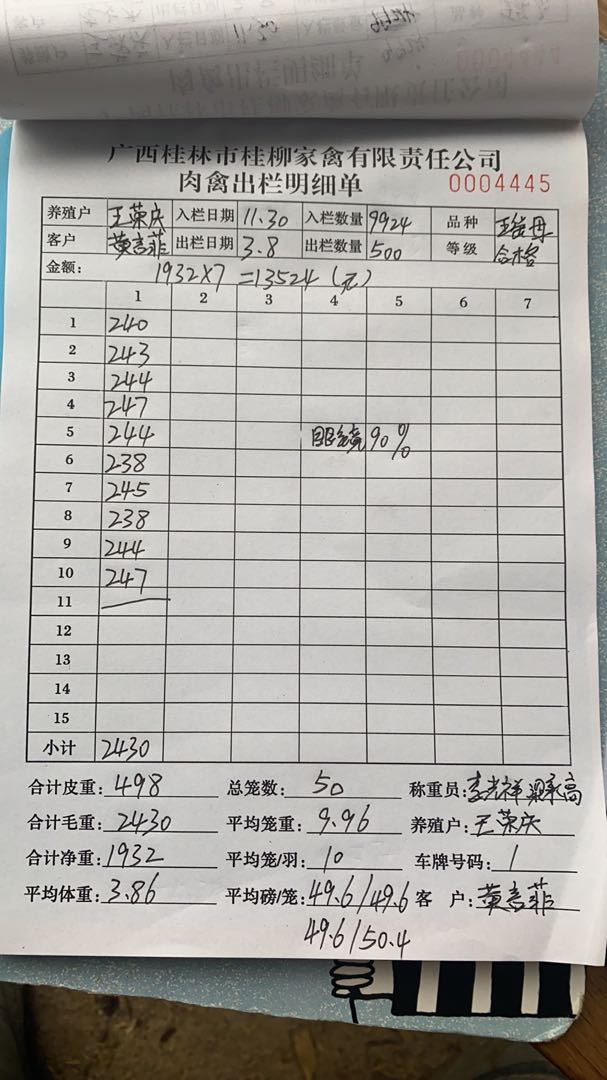 0004444
广西桂林市桂柳家禽有限责任公司
肉禽出栏明细单 0004445
养殖户 王荣庆 入栏日期 11.30 入栏数量 9924 品种
客户 黄言菲 出栏日期 3.8 出栏数量 500 等级 合格
金额: 1932×7=13524(元)
1 2 3 4 5 6 7
1 240
2 243
3 244
4 247
5 244 眼镜 90%
6 238
7 245
8 238
9 244
10 247
11
12
13
14
15
小计 2430
合计皮重: 498 总笼数: 50 称重员: 李光祥
合计毛重: 2430 平均笼重: 9.96 养殖户: 王荣庆
合计净重: 1932 平均笼/羽: 10 车牌号码: 1
平均体重: 3.86 平均磅/笼: 49.6/49.6 客 户: 黄言菲
49.6/50.4